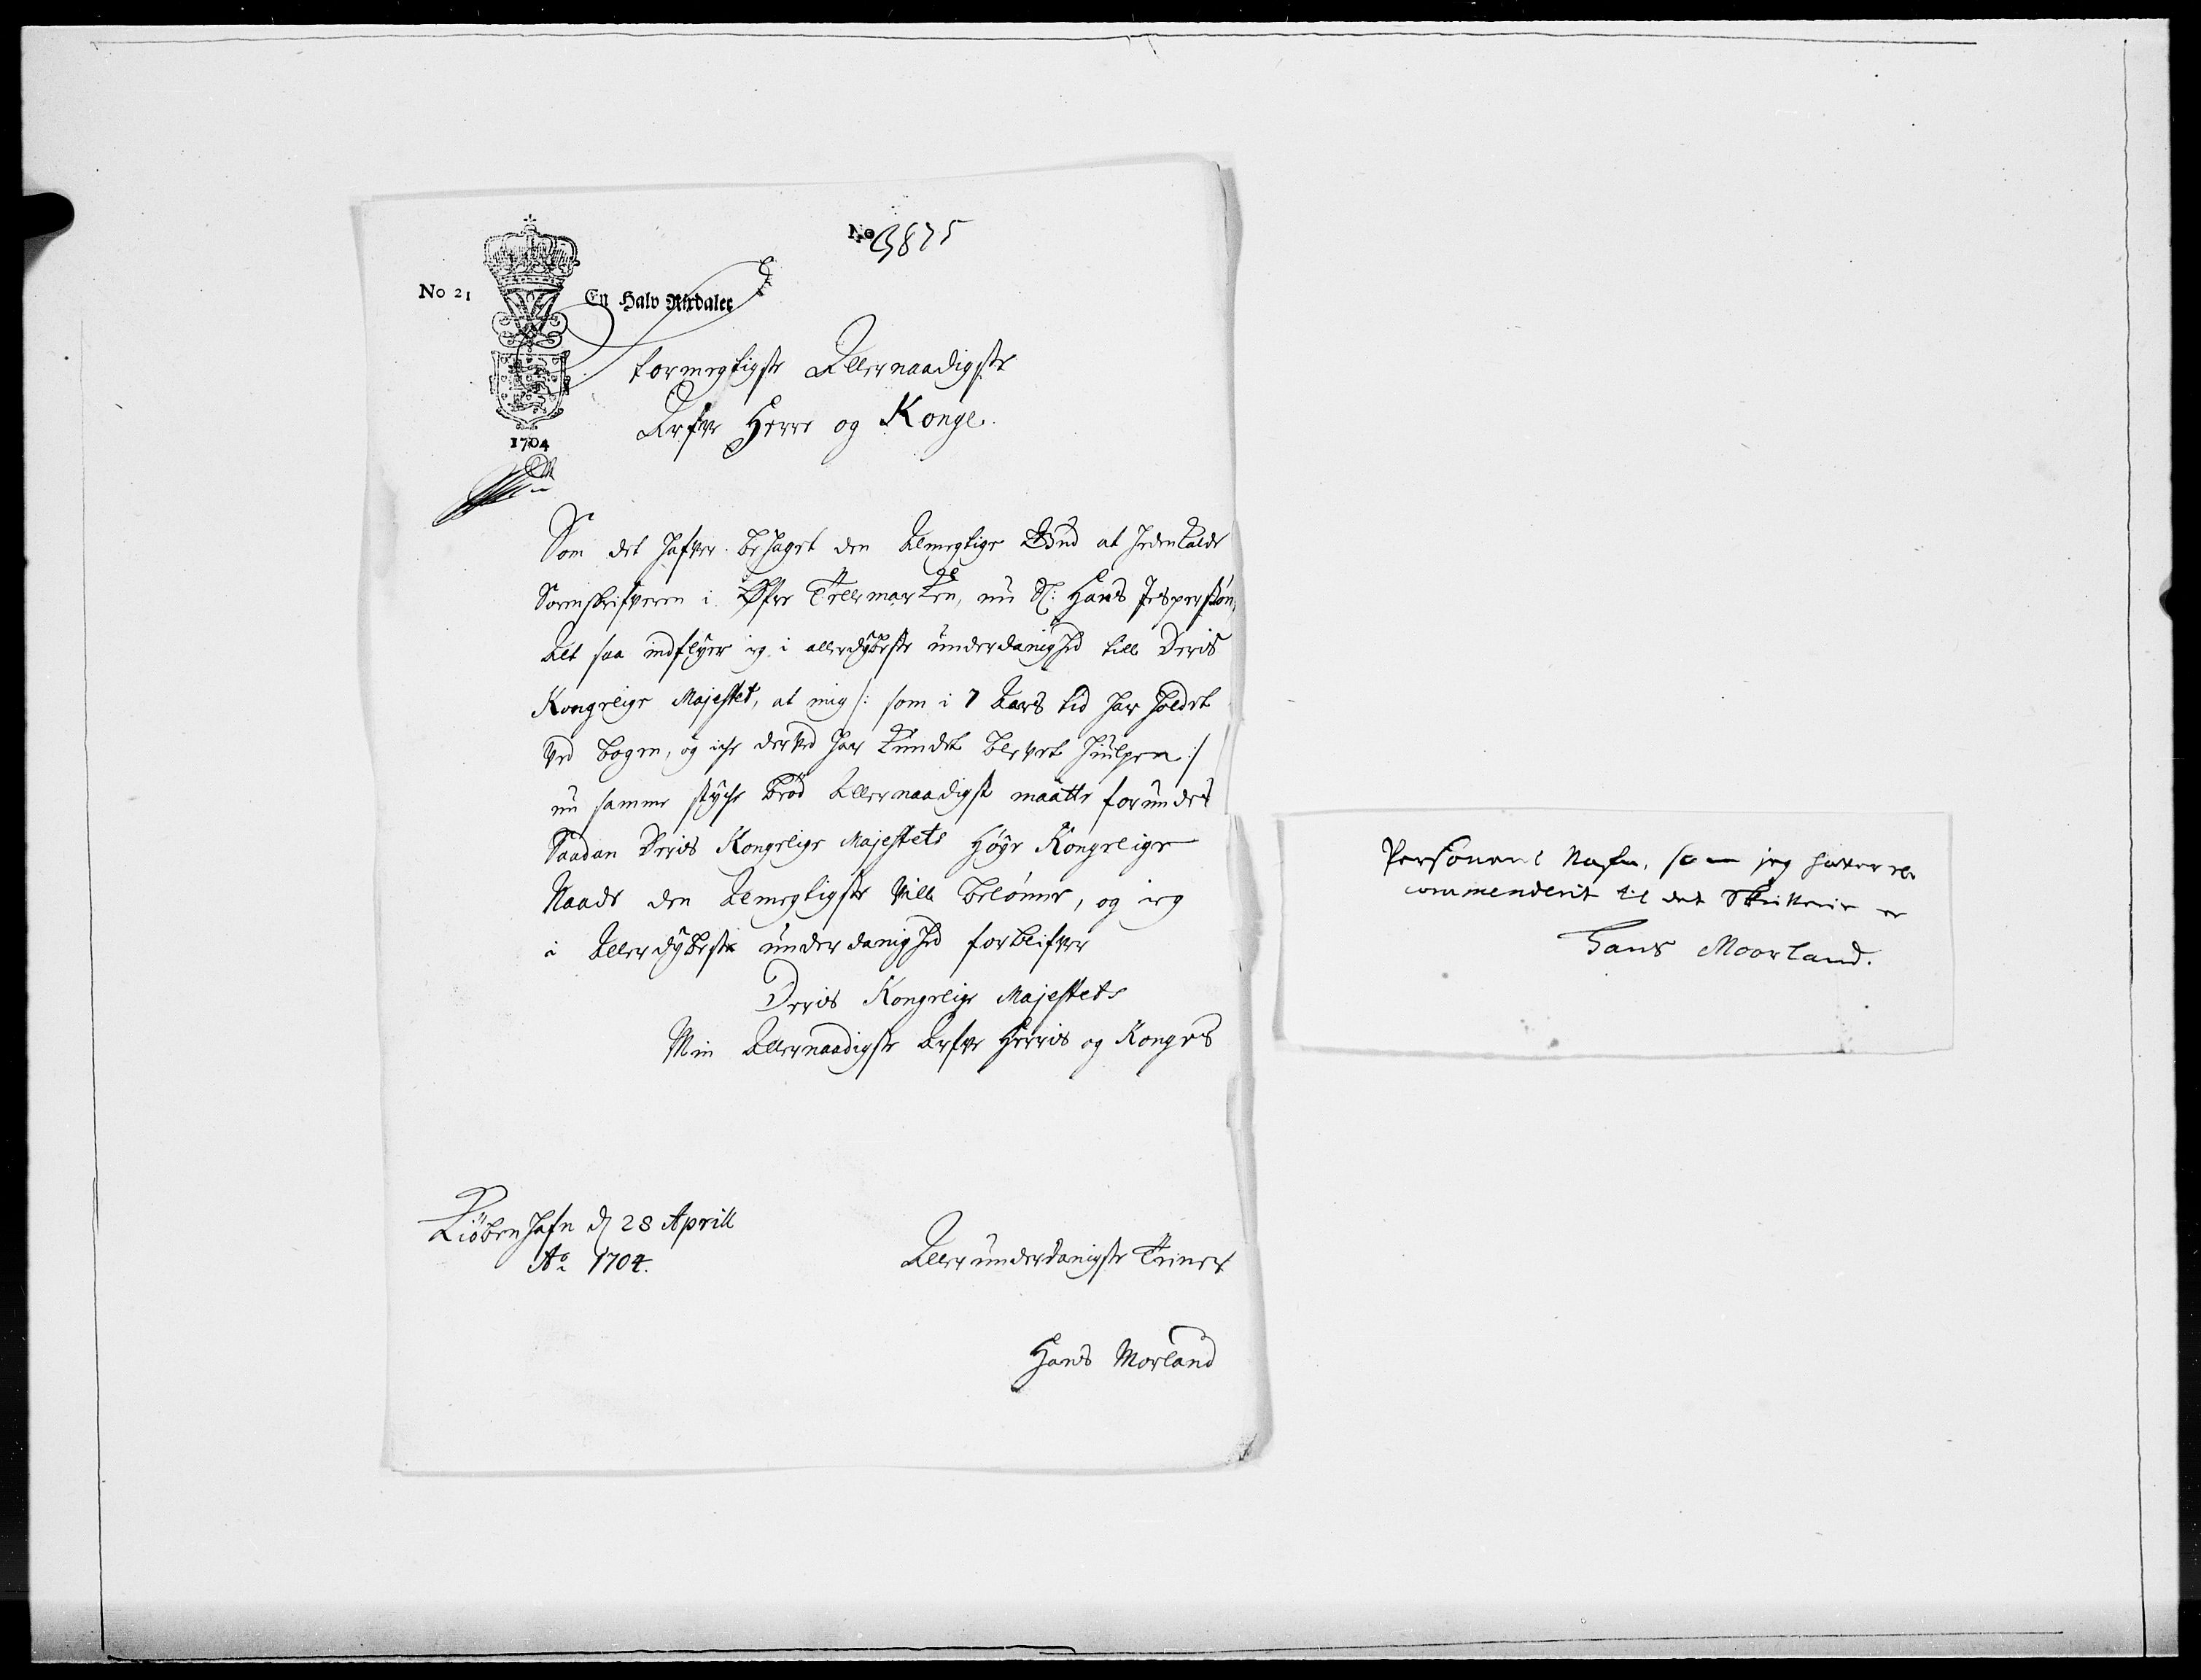 No 3875
No 21
En Halv Rixdaler
1704
Stormegtigste Allernaadigste
Arfve Herre og Konge.
Som det hafver behaget den Almegtige Gud at hedenkalde
Sorenskrifveren i Øfre Tellemarken, nu Sl: Hans Jespersøn,
Alt saa indflyer ieg i allerdybeste underdanighed till Deris
Kongelige Majestet, at mig /: som i 7 Aars tid har holdet
ved bogen, og iche derved har kundet blevet hiulpen :/
nu samme styche brød Allernaadigst maatte forundes
Saadan Deris Kongelige Majestets Høye Kongelige
Naade den Almegtigste Ville belønne, og ieg
i Allerdybeste underdanighed forblifver
Deris Kongelige Majestets
Min Allernaadigste Arfve Herris og Konges
Kiøbenhafn d 28 Aprill
Ao 1704.
Allerunderdanigste Tiener
Hans Morland
Personens Nafn, som jeg hafver re
commenderit til det Skriverie er
Hans Moorland.